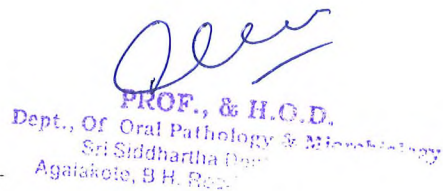 PROF., & H.O.D.
Dept., Of Oral Pathology & Microbiology
Sri Siddhartha
Agalakote, B H.